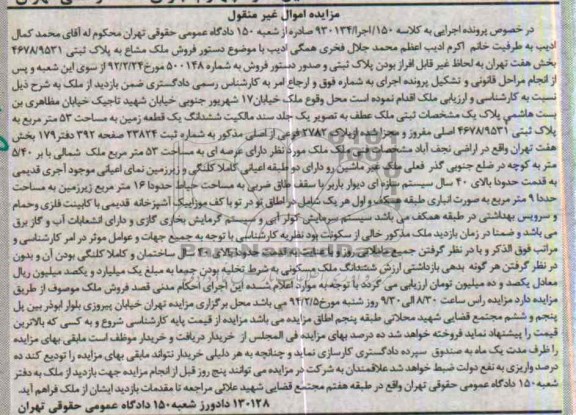 مزایده اموال غیر منقول
در خصوص پرونده اجرایی به کلاسه ۱۵۰/اجرا/۹۳۰۱۳۴ صادره از شعبه ۱۵۰ دادگاه عمومی حقوقی تهران محکوم له آقای محمد کمال
ادیب به طرفیت خانم اکرم ادیب اعظم محمد جلال فخری همگی ادیب با موضوع دستور فروش ملک مشاع به پلاک ثبتی ۴۶۷۸/۹۵۳۱
بخش هفت تهران به لحاظ غیر قابل افراز بودن پلاک ثبتی و صدور دستور فروش به شماره ۵۰۰۱۴۸ مورخ ۹۲/۲/۲۴ از سوی این شعبه و پس
از انجام مراحل قانونی و تشکیل پرونده اجرای به شماره فوق و ارجاع امر به کارشناس رسمی دادگستری ضمن بازدید از ملک به شرح ذیل
نسبت به کارشناسی و ارزیابی ملک اقدام نموده است محل وقوع ملک خیابان ۱۷ شهریور جنوبی خیابان شهید تاجیک خیابان مظاهری بن
بست هاشمی پلاک یک مشخصات ثبتی ملک عطف به تصویر یک جلد سند مالکیت ششدانگ یک قطعه زمین به مساحت ۵۳ متر مربع به
پلاک ثبتی ۴۶۷۸/۹۵۳۱ اصلی مفروز و مجزا شده از پلاک ۲۷۸۲ فرعی از اصلی مذکور به شماره ثبت ۲۳۸۲۴ صفحه ۳۹۲ دفتر ۱۷۹ بخش
هفت تهران واقع در اراضی نجف آباد مشخصات فنی ملک ملک مورد نظر دارای عرصه ای به مساحت ۵۳ متر مربع ملک شمالی با بر ۵/۴۰
متر به کوچه در ضلع جنوبی گذر فعلی ملک غیر ماشین رو دارای دو طبقه اعیانی کاملا کلنگی و زیرزمین نمای اعیانی موجود آجری قدیمی
به قدمت حدودا بالای ۴۰ سال سیستم سازه ای دیوار باربر با سقف طاق ضربی به مساحت حیاط حدودا ۱۶ متر مربع زیرزمین به مساحت
حددا ۹ متر مربع به صورت انباری طبقه همکف و اول هر یک شامل دو اطاق تو در تو با کف موزاییک آشپزخانه قدیمی با کابینت فلزی وحمام
و سرویس بهداشتی در طبقه همکف می باشد سیستم سرمایش کولر آبی و سیستم گرمایش بخاری گازی و دارای انشعابات آب و گاز برق
می باشد و ضمنا در زمان بازدید ملک مذکور خالی از سکونت بود نظریه کارشناسی با توجه به جمیع جهات و عوامل موثر در امر کارشناسی و
مراتب فوق الذکر و با در نظر گرفتن جمیع ساختمان و کاملا کلنگی بودن آن و بدون
در نظر گرفتن هر گونه بدهی بازداشتی ارزش ششدانگ ملک مسکونی به شرط تخلیه بودن جمعا به مبلغ یک میلیارد و یکصد میلیون ریال
معادل یکصد و ده میلیون تومان ارزیابی می گردد با توجه به موارد اعلام شده این اجرای احکام مدنی قصد فروش ملک موصوف از طریق
مزایده دارد مزایده راس ساعت ۸/۳۰ الی ۹/۳۰ روز شنبه مورخ ۹۳/۲/۵ می باشد محل برگزاری مزایده تهران خیابان پیروزی بلوار ابوذر بین پل
پنجم و ششم مجتمع قضایی شهید محلاتی طبقه پنجم اطاق مزایده می باشد مزایده از قیمت پایه کارشناسی شروع و به کسی که بالاترین
قیمت را پیشنهاد نماید فروخته خواهد شد ده درصد بهای مزایده فی المجلس از خریدار دریافت و خریدار موظف است مابقی بهای مزایده
را ظرف مدت یک ماه به صندوق سپرده دادگستری کارسازی نماید و چنانچه به هر دلیلی خریدار نتواند مابقی بهای مزایده را تودیع کند ده
درصد واریزی به نفع دولت ضبط خواهد شد علاقمندان به شرکت در مزایده می توانند پنج روز قبل از انجام مزایده جهت بازدید از ملک به دفتر
شعبه ۱۵۰ دادگاه عمومی حقوقی تهران واقع در طبقه هفتم مجتمع قضایی شهید محلاتی مراجعه تا مقدمات بازدید ایشان از ملک فراهم آید.
۱۳۰۱۲۸ دادورز شعبه ۱۵۰ دادگاه عمومی حقوقی تهران